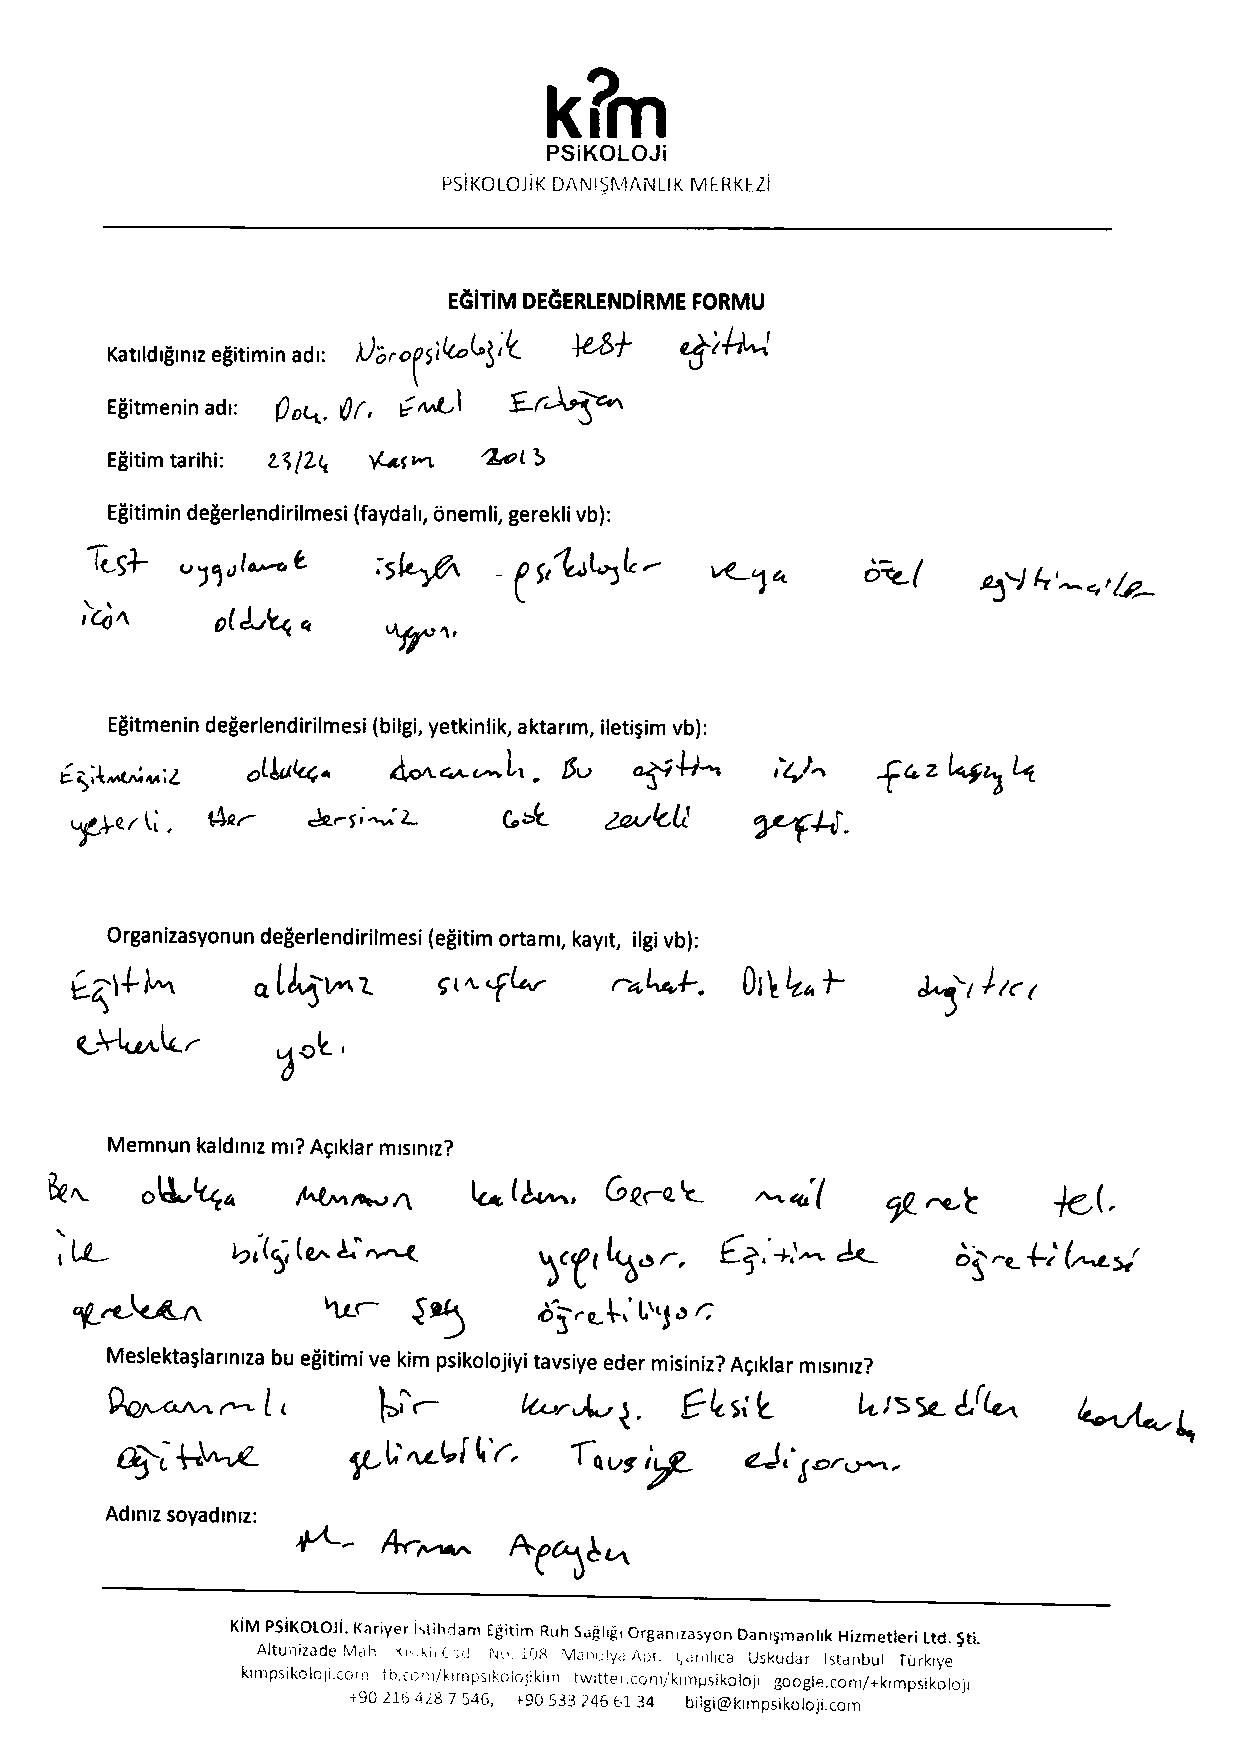 kim
PSİKOLOJİ
PSİKOLOJİK DANIŞMANLIK MERKEZİ
EĞİTİM DEĞERLENDİRME FORMU
Katıldığınız eğitimin adı: Nöropsikolojik test eğitimi
Eğitmenin adı: Doç. Dr. Emel Erdoğan
Eğitim tarihi: 23/24 Kasım 2013
Eğitimin değerlendirilmesi (faydalı, önemli, gerekli vb):
Test uygulamak isteyen psikologlar veya özel eğitimciler
için oldukça uygun.
Eğitmenin değerlendirilmesi (bilgi, yetkinlik, aktarım, iletişim vb):
Eğitmenimiz oldukça donanımlı. Bu eğitim için fazlasıyla
yeterli. Her dersimiz çok zevkli geçti.
Organizasyonun değerlendirilmesi (eğitim ortamı, kayıt, ilgi vb):
Eğitim aldığımız sınıflar rahat. Dikkat dağıtıcı
etkenler yok.
Memnun kaldınız mı? Açıklar mısınız?
Ben oldukça memnun kaldım. Gerek mail gerek tel.
ile bilgilendirme yapılıyor. Eğitimde öğretilmesi
gereken her şey öğretiliyor.
Meslektaşlarınıza bu eğitimi ve kim psikolojiyi tavsiye eder misiniz? Açıklar mısınız?
Donanımlı bir kuruluş. Eksik hissedilen konularda
eğitime gelinebilir. Tavsiye ediyorum.
Adınız soyadınız:
M. Arman Apaydın
KİM PSİKOLOJİ. Kariyer İstihdam Eğitim Ruh Sağlığı Organizasyon Danışmanlık Hizmetleri Ltd. Şti.
Altunizade Mah. Kısıklı Cad. No. 108 Apt. Çamlıca Üsküdar İstanbul Türkiye
kimpsikoloji.com fb.com/kimpsikolojikim twitter.com/kimpsikoloji google.com/+kimpsikoloji
+90 216 428 7 546, +90 533 246 61 34 bilgi@kimpsikoloji.com